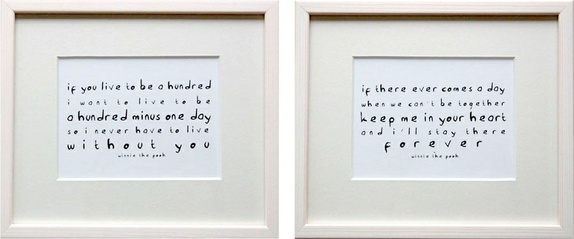 if you live to be a hundred
i want to live to be
a hundred minus one day
so i never have to live
without you
winnie the pooh
if there ever comes a day
when we can't be together
keep me in your heart
and i'll stay there
forever
winnie the pooh